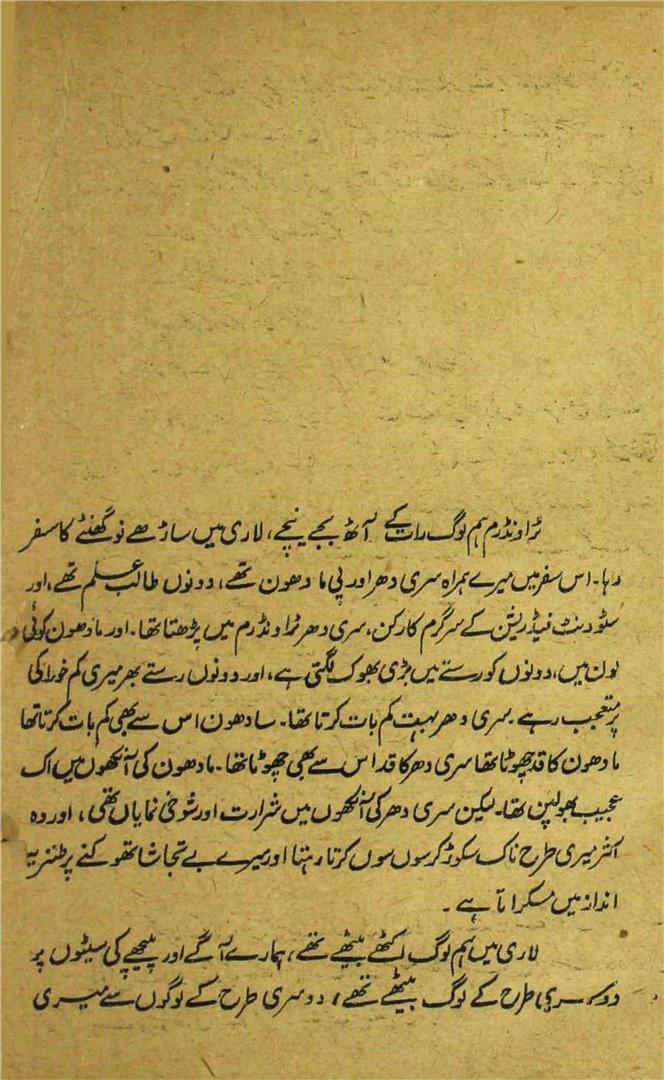 ٹراونڈرم ہم لوگ رات کے آٹھ بجے پہنچے، لاری میں ساڑھے نو گھنٹے کا سفر
رہا۔ اس سفر میں میرے ہمراہ سری دھر اور پی مادھون تھے، دونوں طالب علم تھے، اور
سٹوڈنٹ فیڈریشن کے سرگرم کارکن، سری دھر ٹراونڈرم میں پڑھتا تھا۔ اور مادھون کوئی
لون میں، دونوں کو رستے میں بڑی بھوک لگتی ہے، اور دونوں رستے بھر میری کم خوراکی
پر متعجب رہے۔ سری دھر بہت کم بات کرتا تھا۔ سادھون اس سے بھی کم بات کرتا تھا
مادھون کا قد چھوٹا تھا سری دھر کا قد اس سے بھی چھوٹا تھا۔ مادھون کی آنکھوں میں اک
عجیب بھولپن تھا۔ لیکن سری دھر کی آنکھوں میں شرارت اور شوخی نمایاں تھی، اور وہ
اکثر میری طرح ناک سکوڑ کر سوں سوں کرتا رہتا اور میرے بے تحاشا تھوکنے پر طنزیہ
انداز میں مسکراتا ہے۔
لاری میں ہم لوگ اکٹھے بیٹھے تھے، ہمارے آگے اور پیچھے کی سیٹوں پر
دوسری طرح کے لوگ بیٹھے تھے، دوسری طرح کے لوگوں سے میری